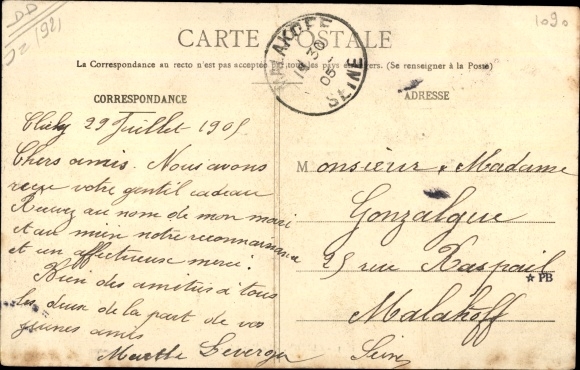 DD
1090
CARTE POSTALE
La Correspondance au recto n'est pas acceptée par tous les pays étrangers. (Se renseigner à la Poste)
MALAKOFF
30
05
SEINE
CORRESPONDANCE
Clichy 29 Juillet 1905
Chers amis. Nous avons
reçu votre gentil cadeau
Recevez au nom de mon mari
et au mien notre reconnaissance
et un affectueux merci.
Bien des amitiés à tous
les deux de la part de vos
jeunes amis
Marthe
ADRESSE
Monsieur & Madame
Gonzalgue
25 rue Raspail
PB
Malakoff
Seine